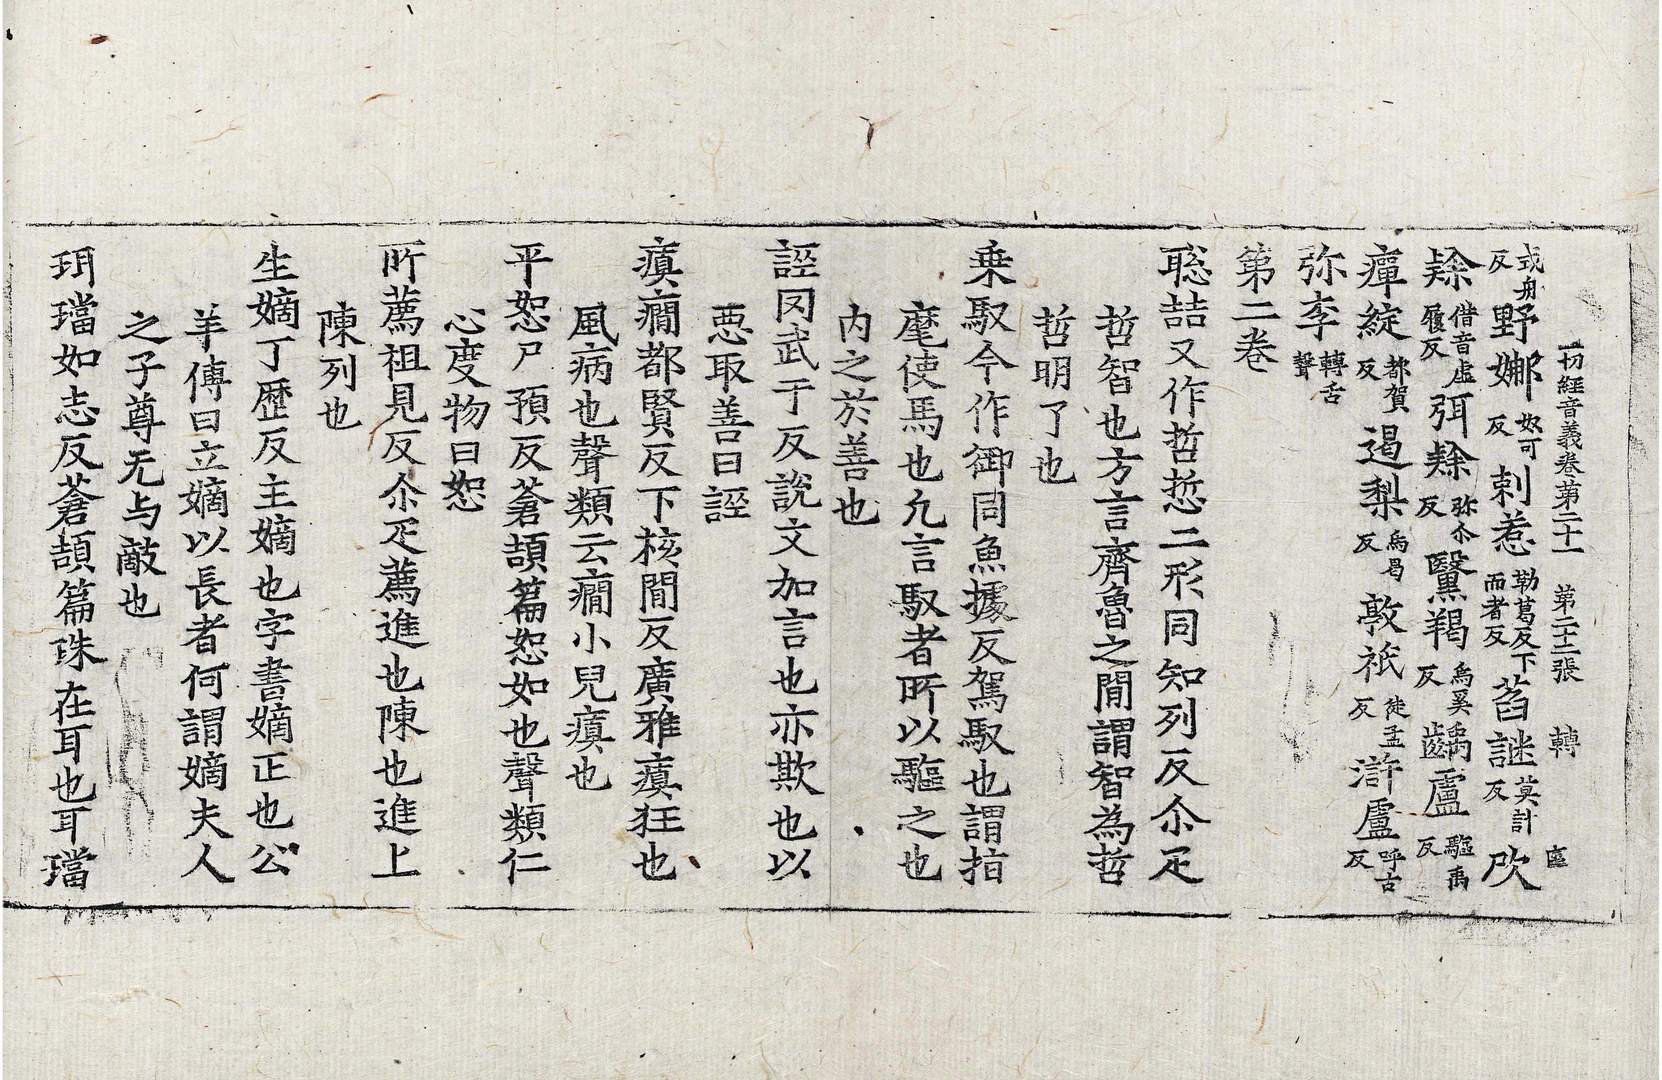 一切経音義卷第二十一 第二十二張 轉 䓝
反 或舟 野娜 奴可反 剌惹 勒葛反下而者反 萏謎 莫計反 欥
䟽 借音虛履反 弭䟽 弥尒反 黳羯 烏奚反 齲盧 驅禹反
瘅綻 都賀反 遏梨 烏曷反 敦祇 徒孟反 滸盧 呼古反
弥李 轉舌聲
第二卷
聡喆又作哲悊二形同知列反尒疋
哲智也方言齊魯之間謂智為哲
哲明了也
乗馭今作御同魚據反駕馭也謂指
麾使馬也凢言馭者所以驅之也
内之於善也
誣罔武于反說文加言也亦欺也以
悪取善曰誣
瘨癇都賢反下核間反廣雅瘨狂也
風病也聲類云癇小兒瘨也
平恕尸預反蒼頡篇恕如也聲類仁
心度物曰恕
所薦祖見反尒疋薦進也陳也進上
陳列也
生嫡丁歷反主嫡也字書嫡正也公
羊傳曰立嫡以長者何謂嫡夫人
之子尊无与敵也
珥璫如志反蒼頡篇珠在耳也耳璫